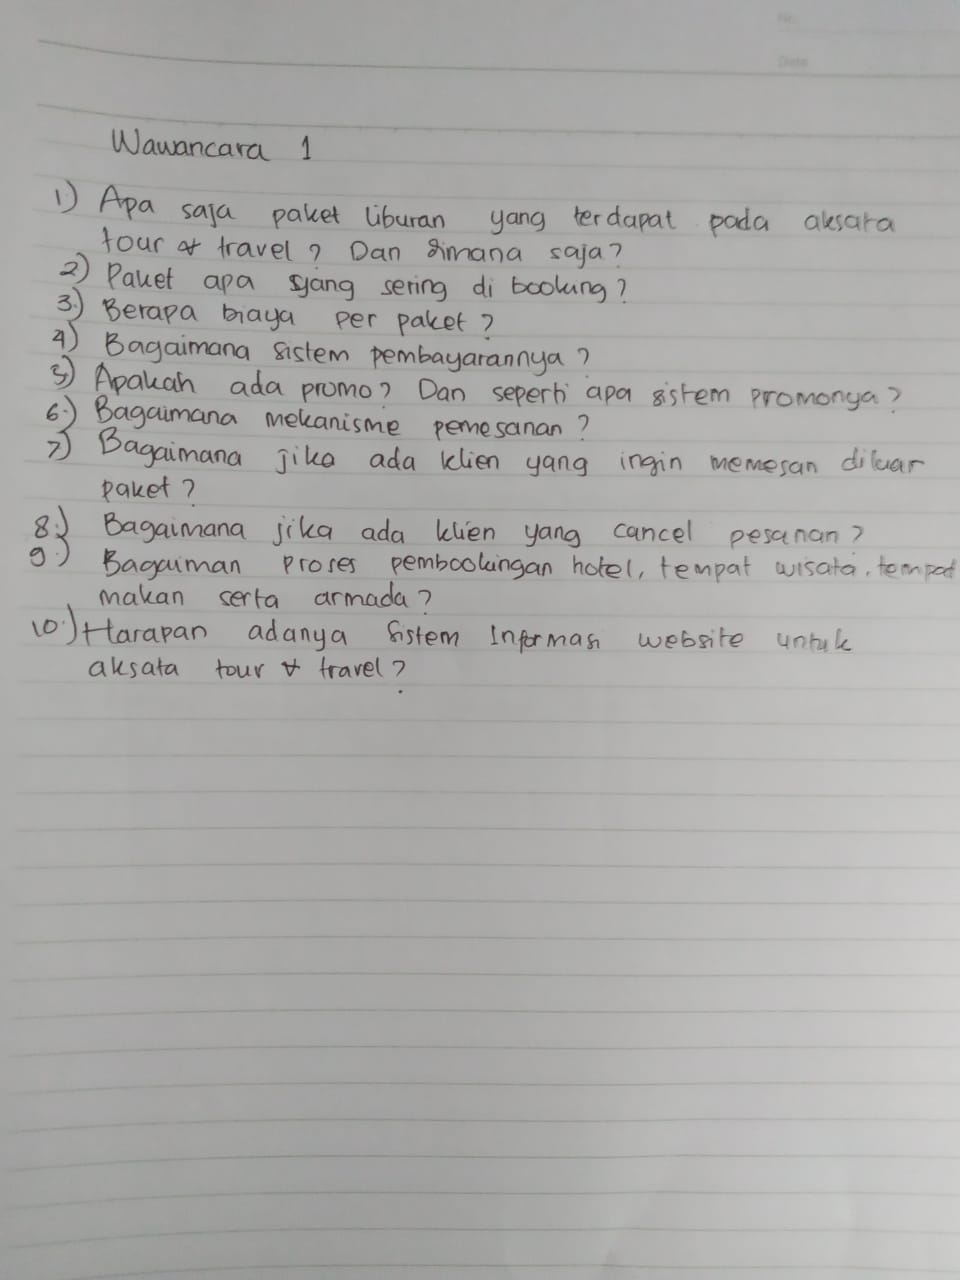 No.
Date
Wawancara 1
1.) Apa saja paket liburan yang terdapat pada aksara
tour & travel ? Dan dimana saja?
2.) Paket apa yang sering di booking ?
3.) Berapa biaya per paket ?
4) Bagaimana sistem pembayarannya ?
5) Apakah ada promo ? Dan seperti apa sistem promonya ?
6.) Bagaimana mekanisme pemesanan ?
7.) Bagaimana jika ada klien yang ingin memesan diluar
paket ?
8.) Bagaimana jika ada klien yang cancel pesanan ?
9.) Bagaiman proses pembookingan hotel, tempat wisata, tempat
makan serta armada ?
10.) Harapan adanya sistem Informasi website untuk
aksata tour & travel ?